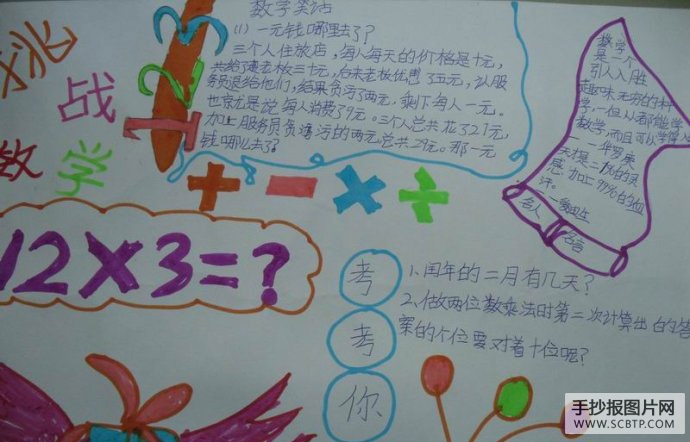 挑
战
数
学
数学笑话
(1) 一元钱哪里去了？
三个人住旅店，每人每天的价格是十元，
共给了老板三十元，后来老板优惠了五元，让服
务员退给他们，结果贪污了两元，剩下每人一元。
也就是说每人消费了9元。三个人总共花了27元，
加上服务员贪污的两元总共29元。那一元
钱哪么去了？
数学
是一个
引人入胜
趣味无穷的科
学，一但人都能学
数学，而且可以学得
——华罗庚
天才是二%的灵
感加上99%的血
汗。
——爱迪生
名人
名言
+ − × ÷
12×3=?
考
考
你
1、闰年的二月有几天？
2、做两位数乘法时第二次计算出的答
案的个位要对着十位呢？
手抄报图片网
WWW.SCBTP.COM